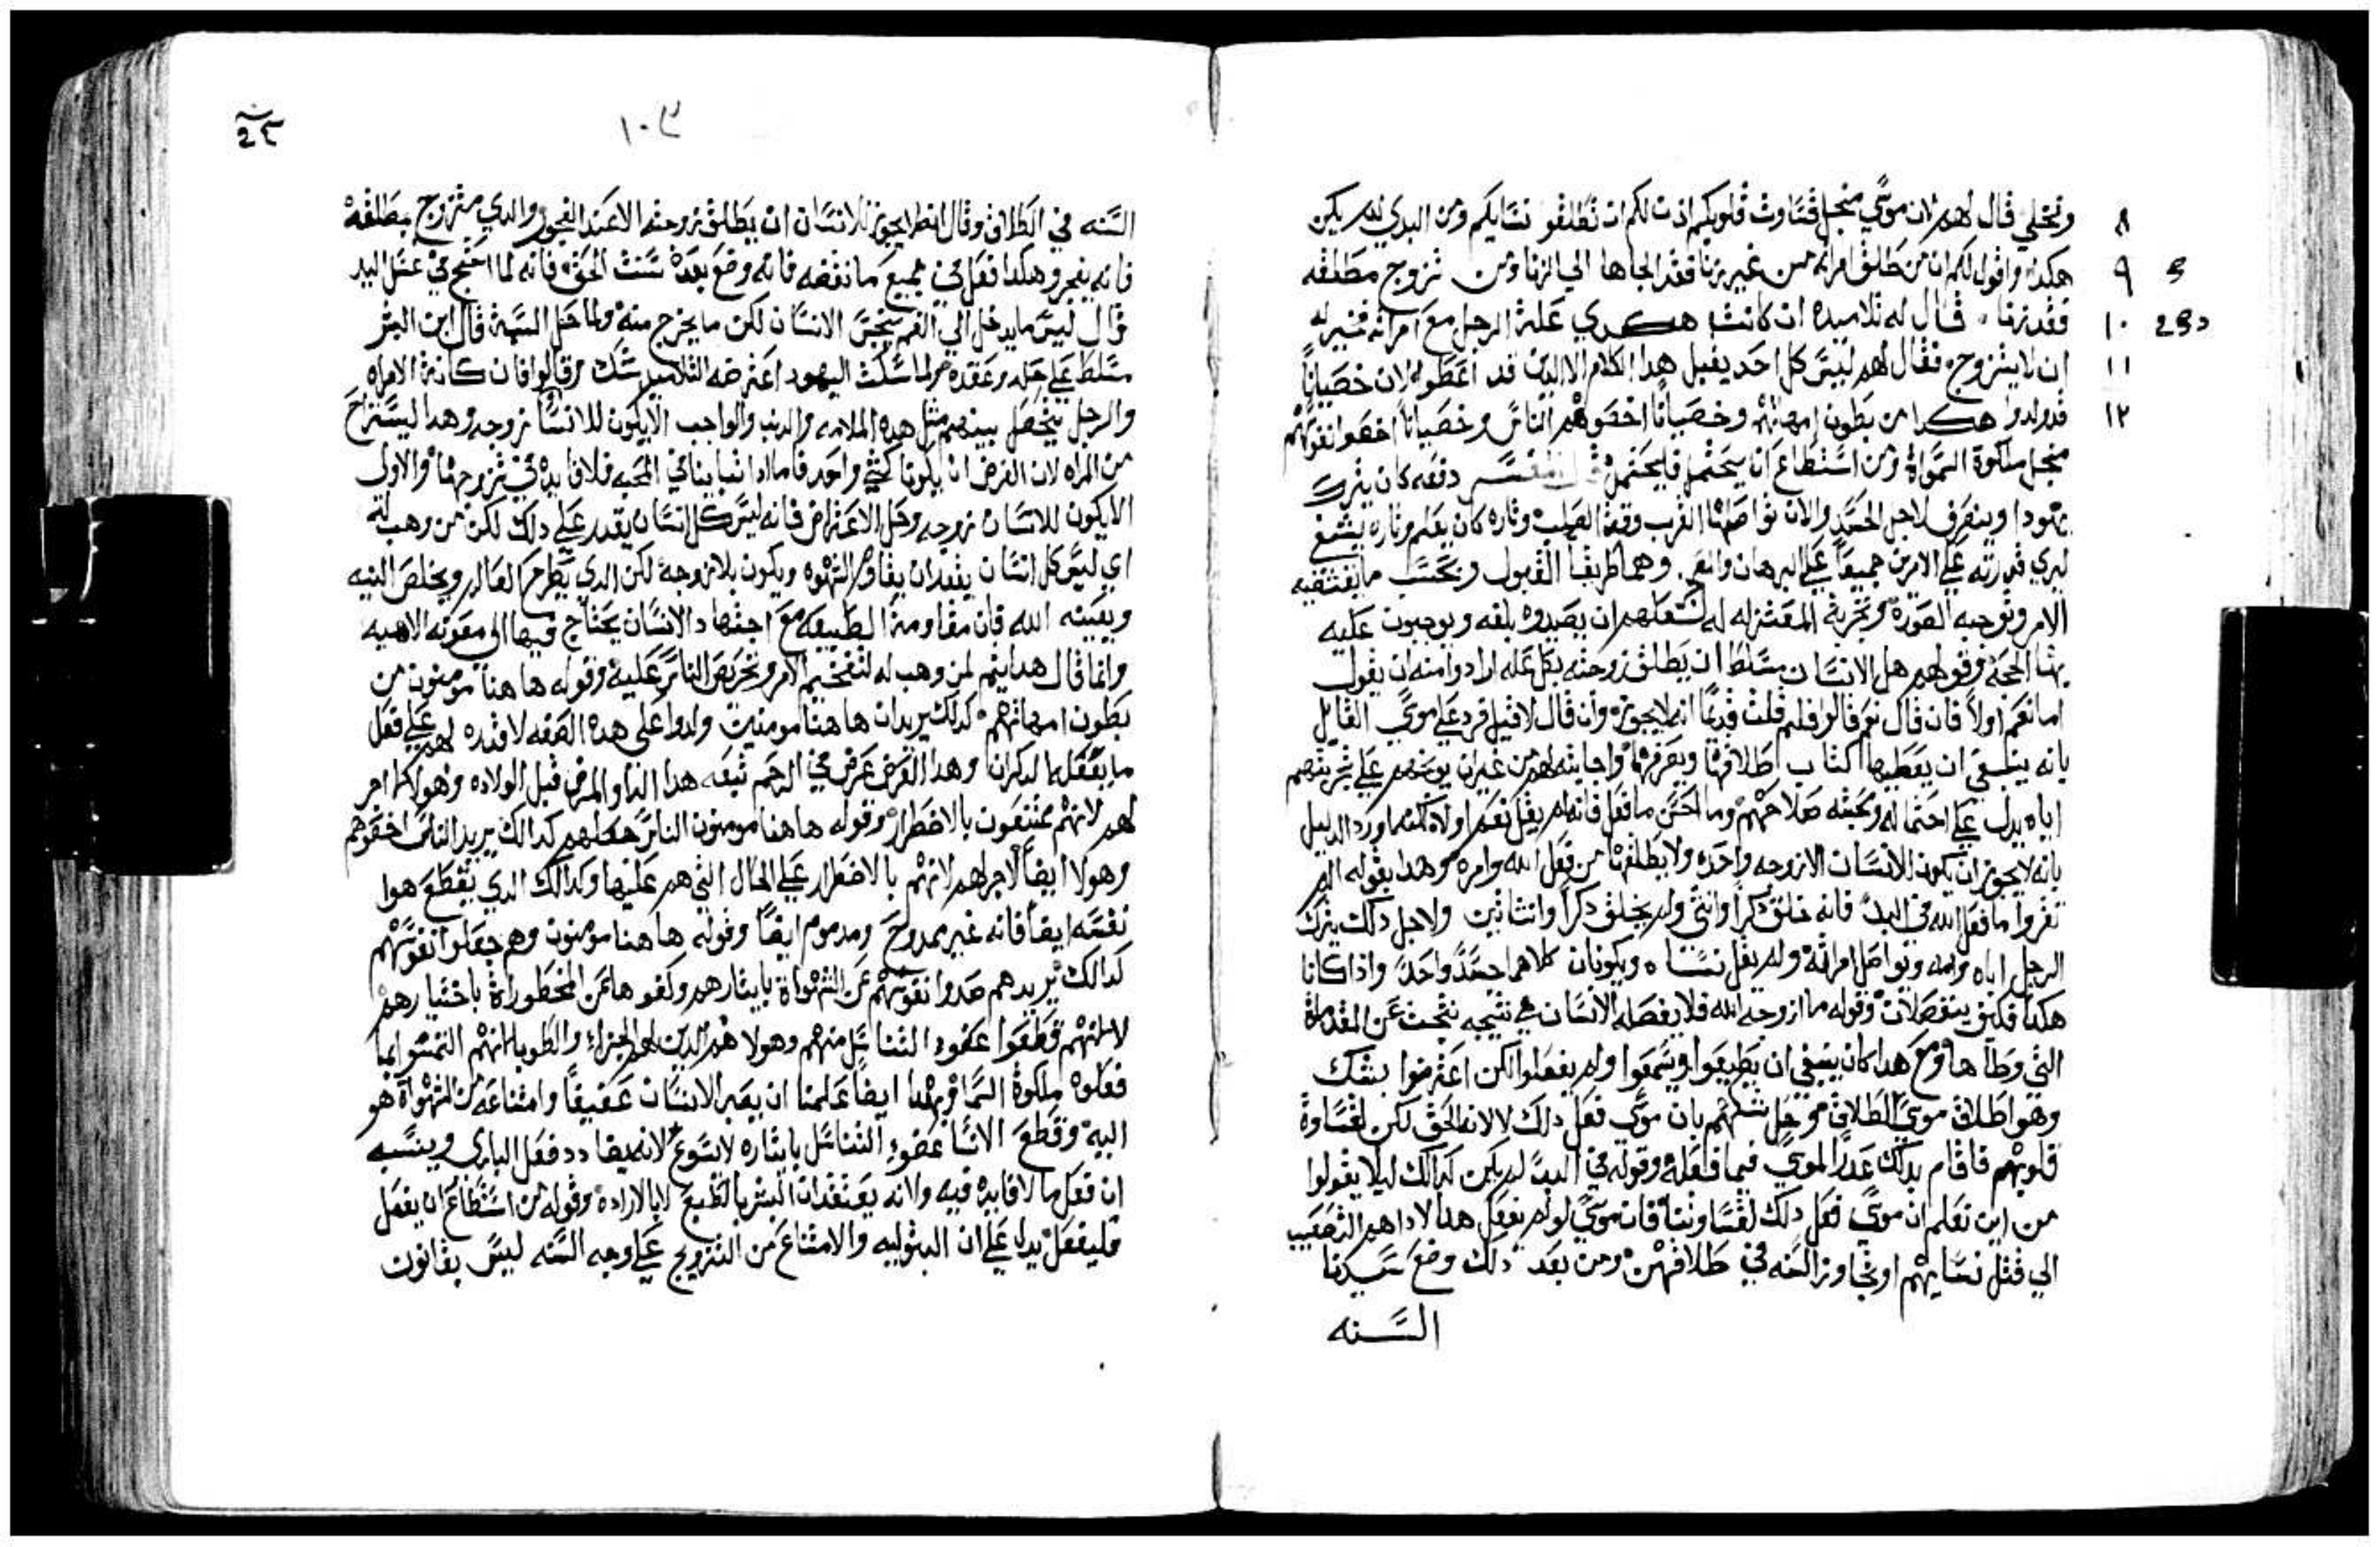 وتخلي قال لهم لان موسي منجل قساوت قلوبكم اذن لكم ان تطلقو نسايكم ومن البدي لم يكن
٨
هكدا واقول لكم ان من طلق امراته من غير زنا فقد الجاها الي الزنا ومن تزوج مطلقه
٩
فقد زنا قال له تلاميده ان كانت هكدي علة الرجل مع امراته فخير له
١٠
ان لا يتزوج فقال لهم ليس كل احد يقبل هدا الكلام الا الدين قد اعطوه لان خصياناً
١١
قد ولدوا هكدا من بطون امهاتهم وخصياناً اخصوهم الناس وخصياناً اخصوا نفوسهم
١٢
منجل ملكوة السمواة ومن استطاع ان يحتمل فليحتمل دفعه كان يترك
يهودا وينصرف لاجل الحسد والان تواصلنا القرب وقت الصلب وتاره كان يعلم وتاره يشفي
ليري قدرته علي الامرين جميعاً علي البرهان وهما طريقا القبول وبحسب ما يقتضيه
الامر وتوجبه الصوره وتجربة المعتزله له لتعلهم ان يصيدوه بلفه ويوجبون عليه
بها الحجه وقولهم هل الانسان مسلط ان يطلق زوجته بكل عله ارادوا منه ان يقول
اما نعم اولا فان قال نعم قالوا فلم قلت قديماً انه لا يجوز وان قال لا قيل فرد علي موسي القايل
بانه ينبغي ان يعطيها كتاب اطلاقها ويصرفها واجابته لهم من غير ان يوبخهم علي تجربتهم
اياه يدل علي احتماله ومحبته صلاحهم وما احسن ما فعل فانه لم يقل نعم اولا لكنه اورد الدليل
بانه لا يجوز ان يكون للانسان الا زوجه واحده ولا يطلقها من فعل الله وامره وهدا بقوله الم
تقروا ما فعل الله في البدء فانه خلق دكراً وانتي ولم يخلق دكراً وانتاتين ولاجل دلك يترك
الرجل اباه وامه ويواصل امراته ولم يقل نساه ويكونان كلاهما جسداً واحداً واذا كانا
هكدا فكيف ينفصلان وقوله ما ازوجه الله فلا يفصله الانسان هي نتيجه نتجت عن المقدماة
التي وطاها ومع هدا كان ينبغي ان يطيعوا ويسمعوا ولم يفعلوا لكن اعترضوا بشك
وهو اطلاق موسي الطلاق وحل شكهم بان موسي فعل دلك لا لانه الحق لكن لقساوة
قلوبهم فاقام بدلك عدراً لموسي فيما فعله وقوله في البدء لم يكن كدالك ليلا يقولوا
من اين نعلم ان موسي فعل دلك لقساوتنا فان موسي لو لم يفعل هدا لاداهم التصعيب
الي قتل نسايهم او تجاوز السنه في طلاقهن ومن بعد دلك وضع سيدنا
السنه
١٠٣
السنه في الطلاق وقال انه لا يجوز للانسان ان يطلق زوجته الا عند الفجور والدي يتزوج مطلقه
فانه يفجر وهكدا فعل في جميع ما نقضه فانه وضع بعده سنت الحق فانه لما احتج في غسل اليد
قال ليس ما يدخل الي الفم ينجس الانسان لكن ما يخرج منه ولما حل السبة قال ابن البشر
مسلط علي حله وعقده ولما سكت اليهود اعترضه التلاميد بشك وقالوا فان كانة الامراه
والرجل يحصل بينهم مثل هده الملامه والدنب والواجب الا يكون للانسان زوجه وهدا ليستراح
من المراه لان الغرض ان يكونا كشي واحد فاما ادا تباينا في المحبه فلا فايده في تزوجهما والاولي
الا يكون للانسان زوجه وحل الاعتراض فانه ليس كل انسان يقدر علي دلك لكن من وهب له
اي ليس كل انسان يقدر ان يقاوم الشهوه ويكون بلا زوجه لكن الدي يطرح العالم ويخلص النيه
ويعينه الله فان مقاومة الطبيعه مع اجتهاد الانسان يحتاج فيها الي معونه الاهيه
وانما قال هدا يتم لمن وهب له لتفخيم الامر وتحريص الناس عليه وقوله هاهنا مومنون من
بطون امهاتهم كدلك يريد ان هاهنا مومنين ولدوا علي هده الصفه لا قدره لهم علي فعل
ما يفعله الدكران وهدا الغرض عرض في الرحم تبعه هدا الدا والمرض قبل الولاده وهولا لا اجر
لهم لانهم عفيفون بالاضطرار وقوله هاهنا مومنون الناس جعلهم كدالك يريد الناس اخصوهم
وهولا ايضاً لا اجر لهم لانهم بالاضطرار علي الحال التي هم عليها وكدالك الدي يقطع هوا
نفسه ايضاً فانه غير ممدوح ومدموم ايضاً وقوله هاهنا مومنون وهم جعلوا نفوسهم
كدالك يريد هم صدوا نفوسهم عن الشهواة بايثارهم وكفوها عن المحظوراة باختيارهم
لا انهم قطعوا عضو التناسل منهم وهولا هم الدين لهم الجزاء والطوبا لانهم التمسوا بما
فعلوه ملكوة السما وبهدا ايضاً علمنا ان يصير الانسان عفيفاً وامتناعه من الشهواة هو
اليه وقطع الانسان عضو التناسل بايثاره لا يسوغ لانه يضادد فعل الباري وينسبه
ان فعل ما لا فايده فيه ولانه يعتقد ان الشر بالطبع لا بالاراده وقوله من استطاع ان يفعل
فليفعل يدل علي ان البتوليه والامتناع من التزويج علي وجه السنه ليس بقانون